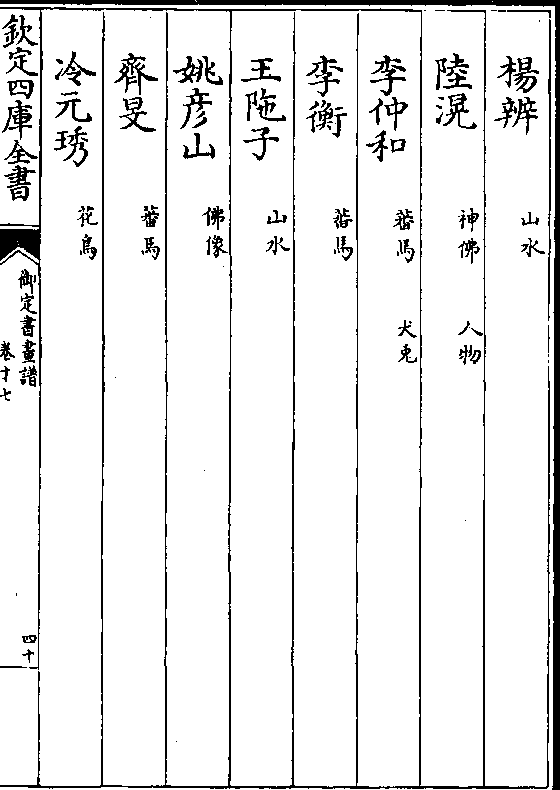 楊辨 山水
陸滉 神佛 人物
李仲和 蕃馬 犬兎
李衡 蕃馬
王陁子 山水
姚彦山 佛像
齊旻 蕃馬
冷元琇 花鳥
欽定四庫全書
御定書畫譜
卷十七
四十